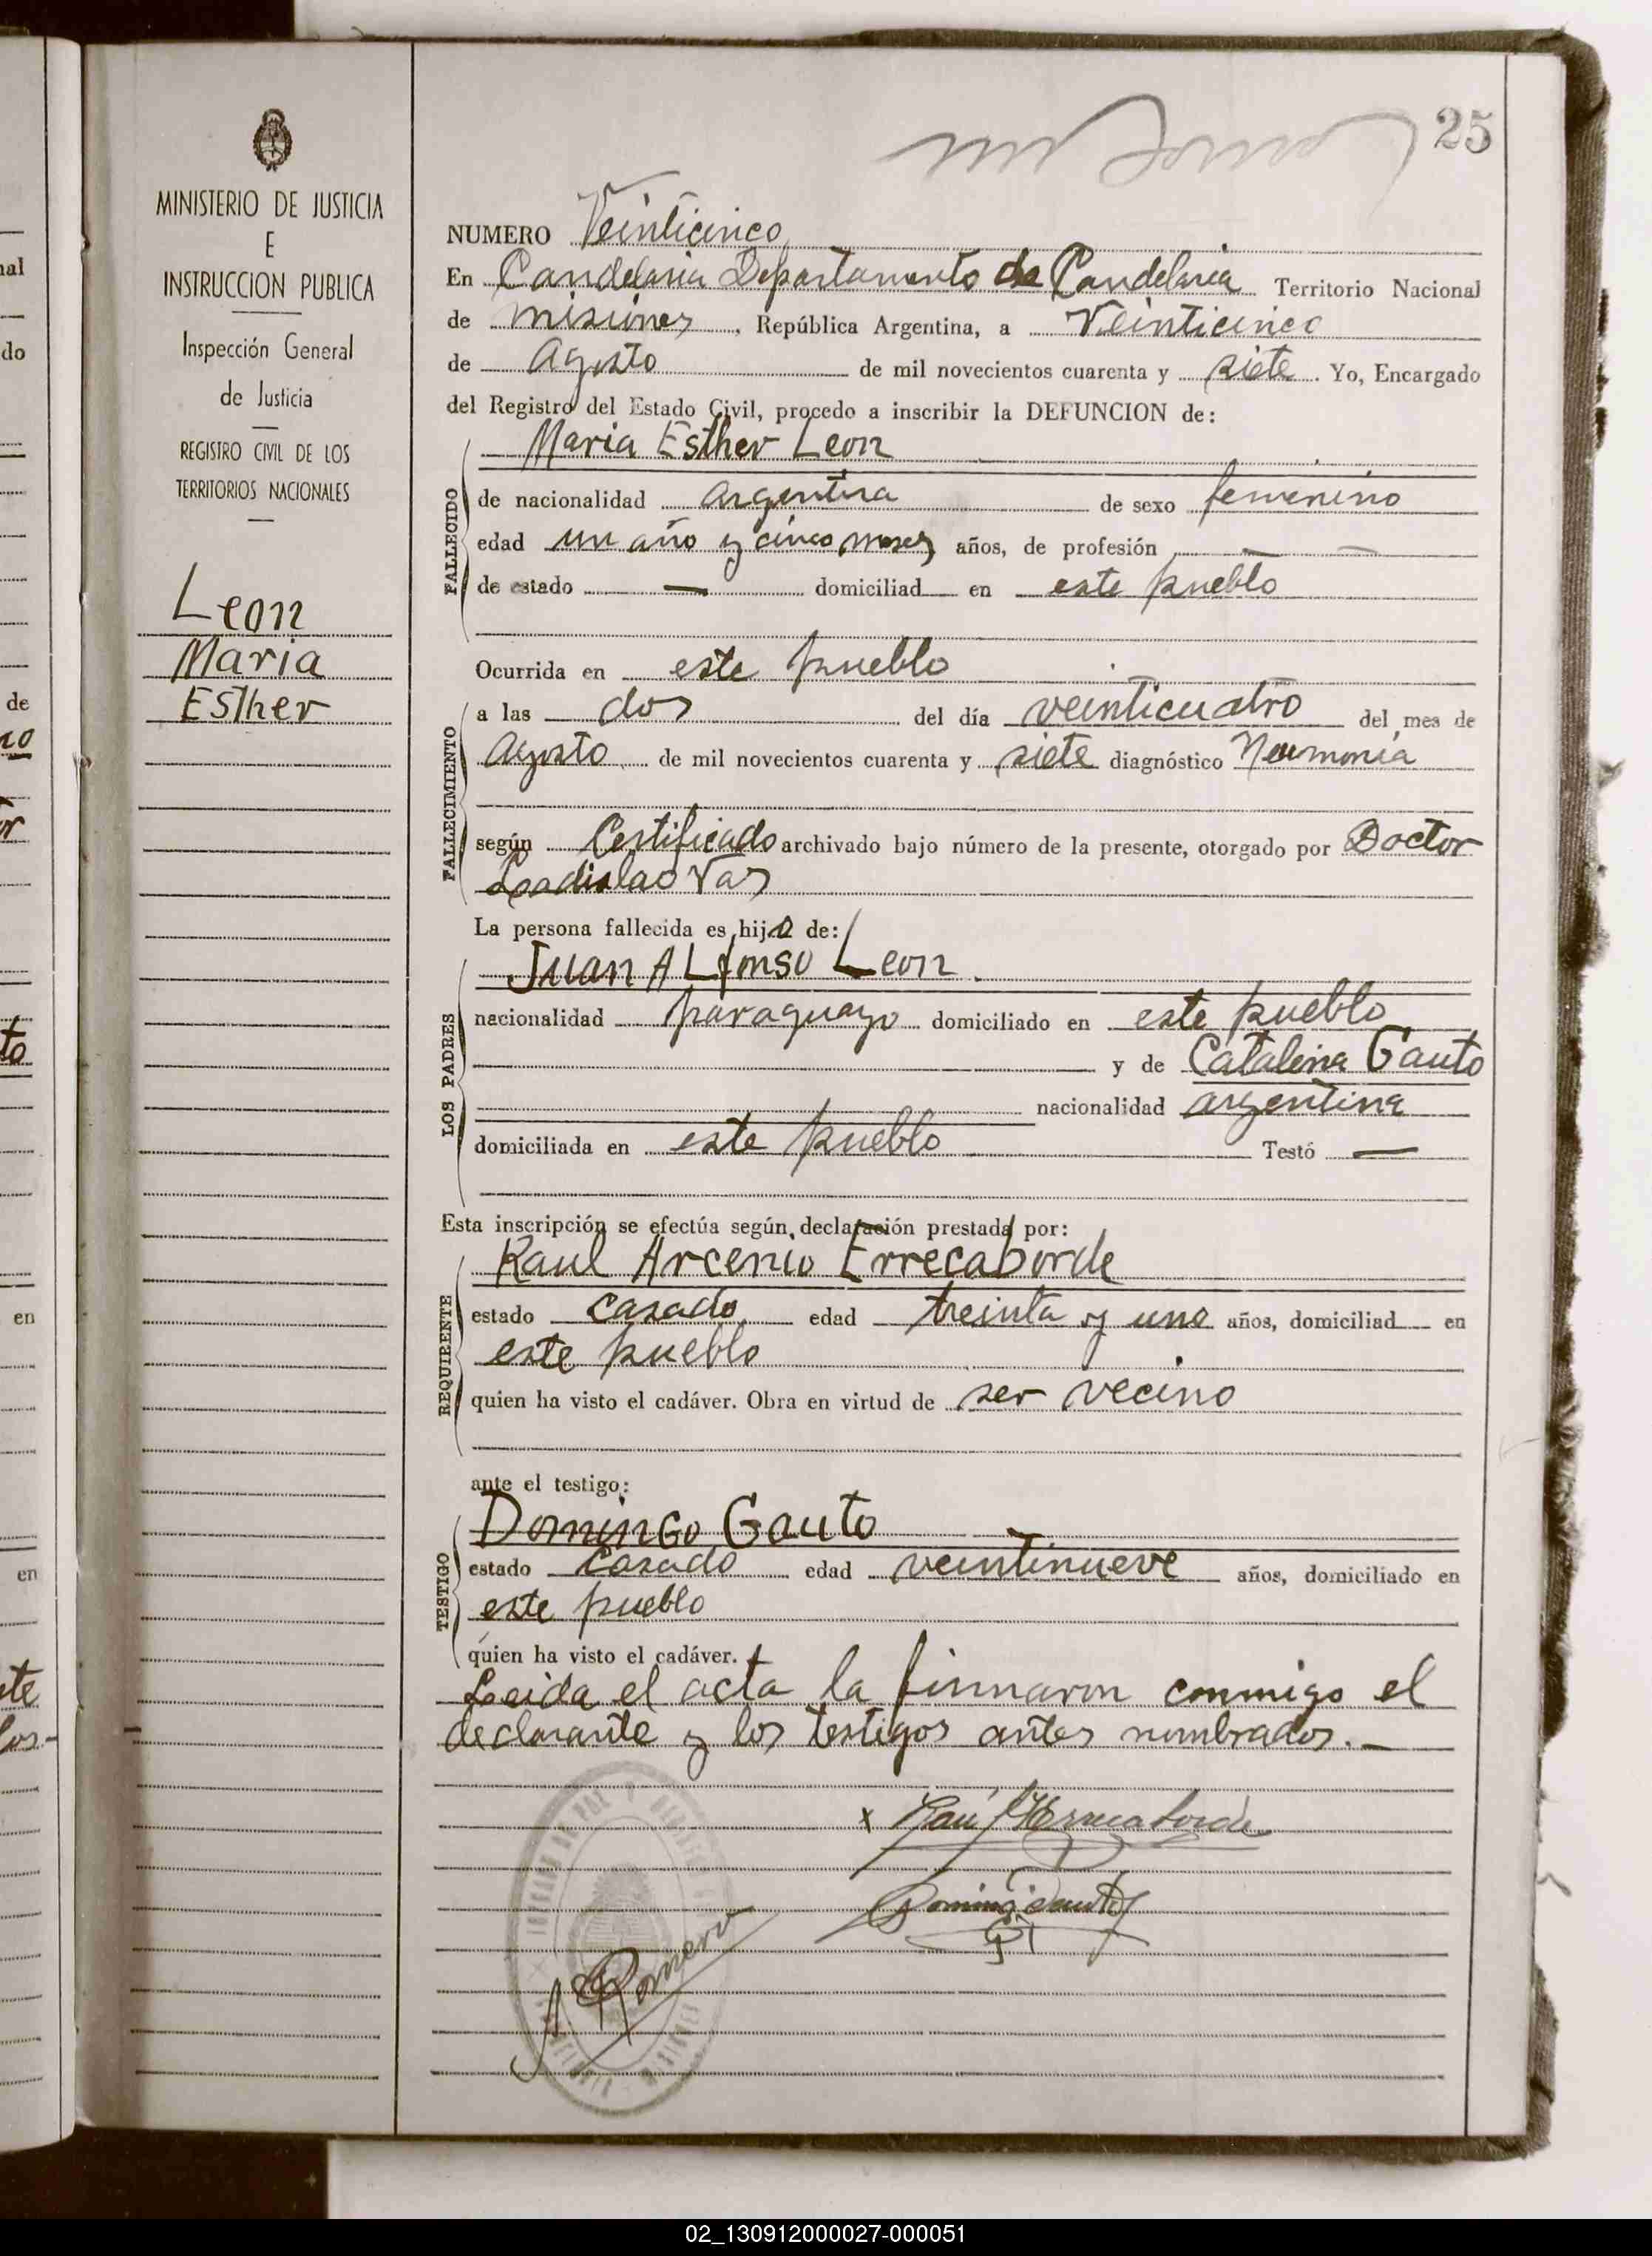 25
MINISTERIO DE JUSTICIA
E
INSTRUCCION PUBLICA
Inspección General
de Justicia
REGISTRO CIVIL DE LOS
TERRITORIOS NACIONALES
Leon
Maria
Esther
NUMERO Veinticinco
En Candelaria Departamento de Candelaria Territorio Nacional
de misiones, República Argentina, a Veinticinco
de Agosto de mil novecientos cuarenta y siete. Yo, Encargado
del Registro del Estado Civil, procedo a inscribir la DEFUNCION de:
Maria Esther Leon
FALLECIDO
de nacionalidad argentina de sexo femenino
edad un año y cinco meses años, de profesión —
de estado — domiciliad en este pueblo
Ocurrida en este pueblo
FALLECIMIENTO
a las dos del día veinticuatro del mes de
Agosto de mil novecientos cuarenta y siete diagnóstico Neumonia
según Certificado archivado bajo número de la presente, otorgado por Doctor
Ladislao Vas
La persona fallecida es hija de:
Juan ALfonso Leon
LOS PADRES
nacionalidad paraguayo domiciliado en este pueblo
y de Catalina Gauto
nacionalidad argentina
domiciliada en este pueblo Testó —
Esta inscripción se efectúa según declaración prestada por:
Raul Arcenio Errecaborde
REQUIRENTE
estado casado edad treinta y uno años, domiciliad en
este pueblo
quien ha visto el cadáver. Obra en virtud de ser vecino
ante el testigo:
Domingo Gauto
TESTIGO
estado casado edad veintinueve años, domiciliado en
este pueblo
quien ha visto el cadáver.
Leida el acta la firmaron conmigo el
declarante y los testigos antes nombrados.—
Domingo Gauto
Romero
al
do
de
en
en
02_130912000027-000051